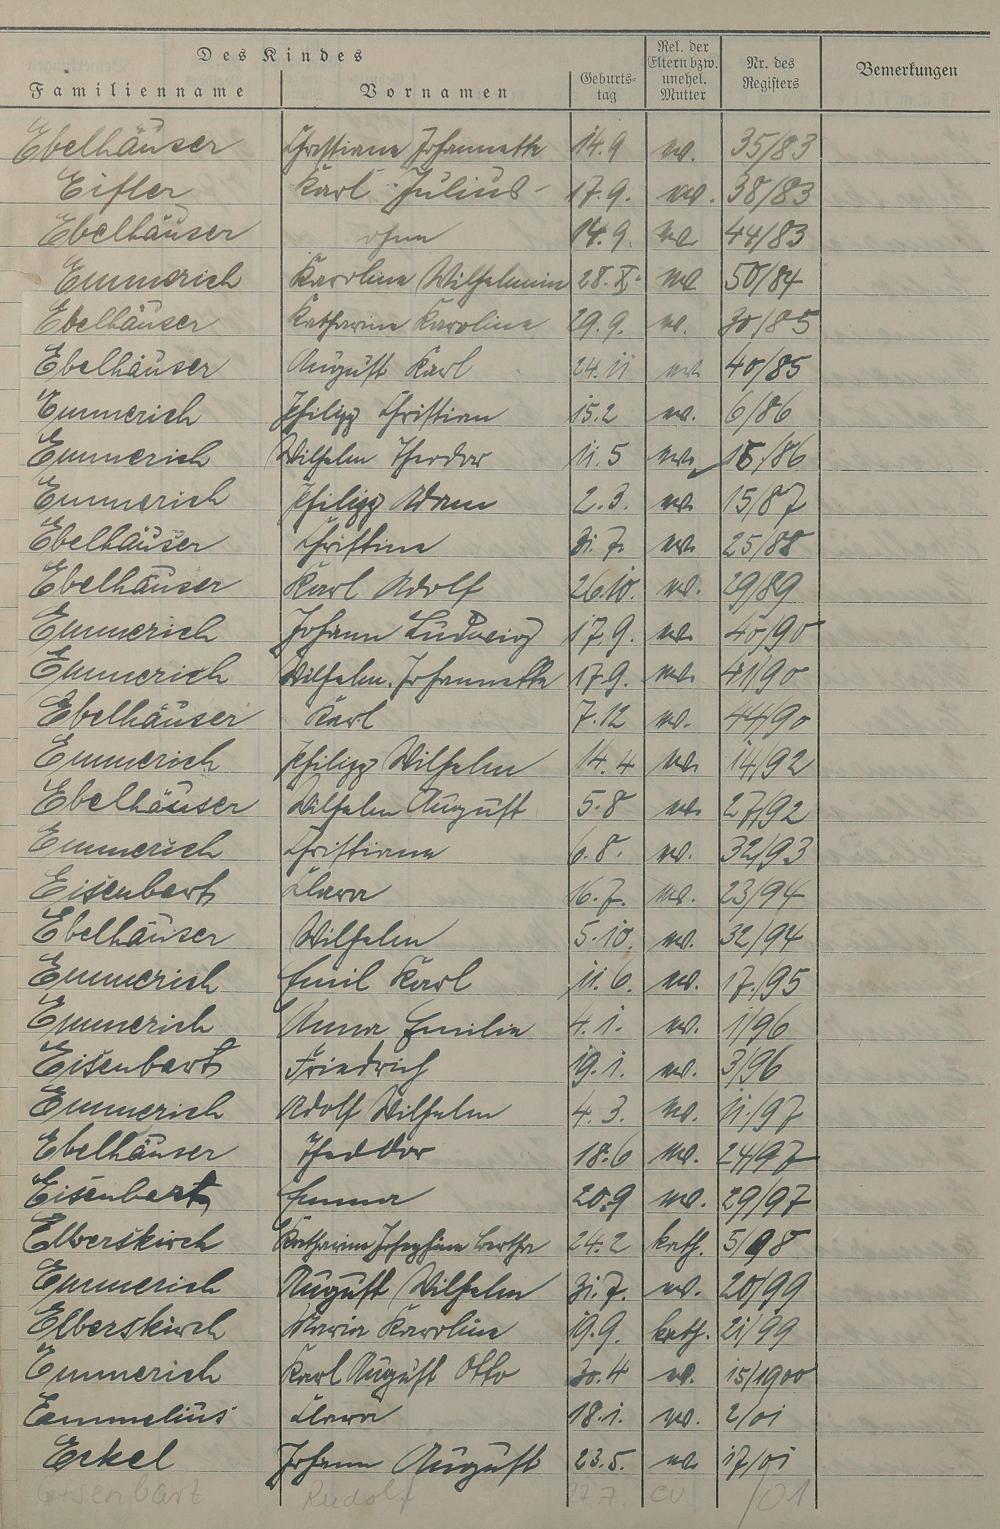 Des Kindes
Familienname Vornamen Geburts-tag Rel. der Eltern bzw. unehel. Mutter Nr. des Registers Bemerkungen
Ebelhäuser Christiane Johannette 14.9 ev. 35/83
Eifler Karl Julius 17.9. ev. 38/83
Ebelhäuser ohne 14.9. ev 44/83
Emmerich Karoline Wilhelmin 28.X. ev 50/84
Ebelhäuser Katharine Karoline 29.9. ev. 30/85
Ebelhäuser August Karl 24.11 ev 40/85
Emmerich Philipp Christian 15.2 ev. 6/86
Emmerich Wilhelm Theodor 11.5 ev. 15/86
Emmerich Philipp Adam 2.3. ev. 15/87
Ebelhäuser Christine 31.7. ev. 25/88
Ebelhäuser Karl Adolf 26.10. ev. 29/89
Emmerich Johann Ludwig 17.9. ev. 40/90
Emmerich Wilhelm. Johannette 17.9. ev. 41/90
Ebelhäuser Karl 7.12 ev. 44/90
Emmerich Philipp Wilhelm 14.4 ev. 14/92
Ebelhäuser Wilhelm August 5.8 ev. 27/92
Emmerich Christiane 6.8. ev. 32/93
Eisenbart Clara 16.7. ev. 23/94
Ebelhäuser Wilhelm 5.10. ev. 32/94
Emmerich Emil Karl 11.6. ev. 17/95
Emmerich Anna Emilie 4.1. ev. 1/96
Eisenbart Friedrich 19.1. ev. 3/96
Emmerich Adolf Wilhelm 4.3. ev. 11/97
Ebelhäuser Theodor 18.6 ev. 24/97
Eisenbart Emma 20.9 ev. 29/97
Elberskirch Katharine Josephine Bertha 24.2 kath. 5/98
Emmerich August Wilhelm 31.7. ev. 20/99
Elberskirch Maria Karoline 19.9. kath. 21/99
Emmerich Karl August Otto 30.4 ev. 15/1900
Emmelius Clara 18.1. ev. 2/01
Erkel Johann August 23.5. ev. 17/01
Eisenbart Rudolf 27.7. ev /01